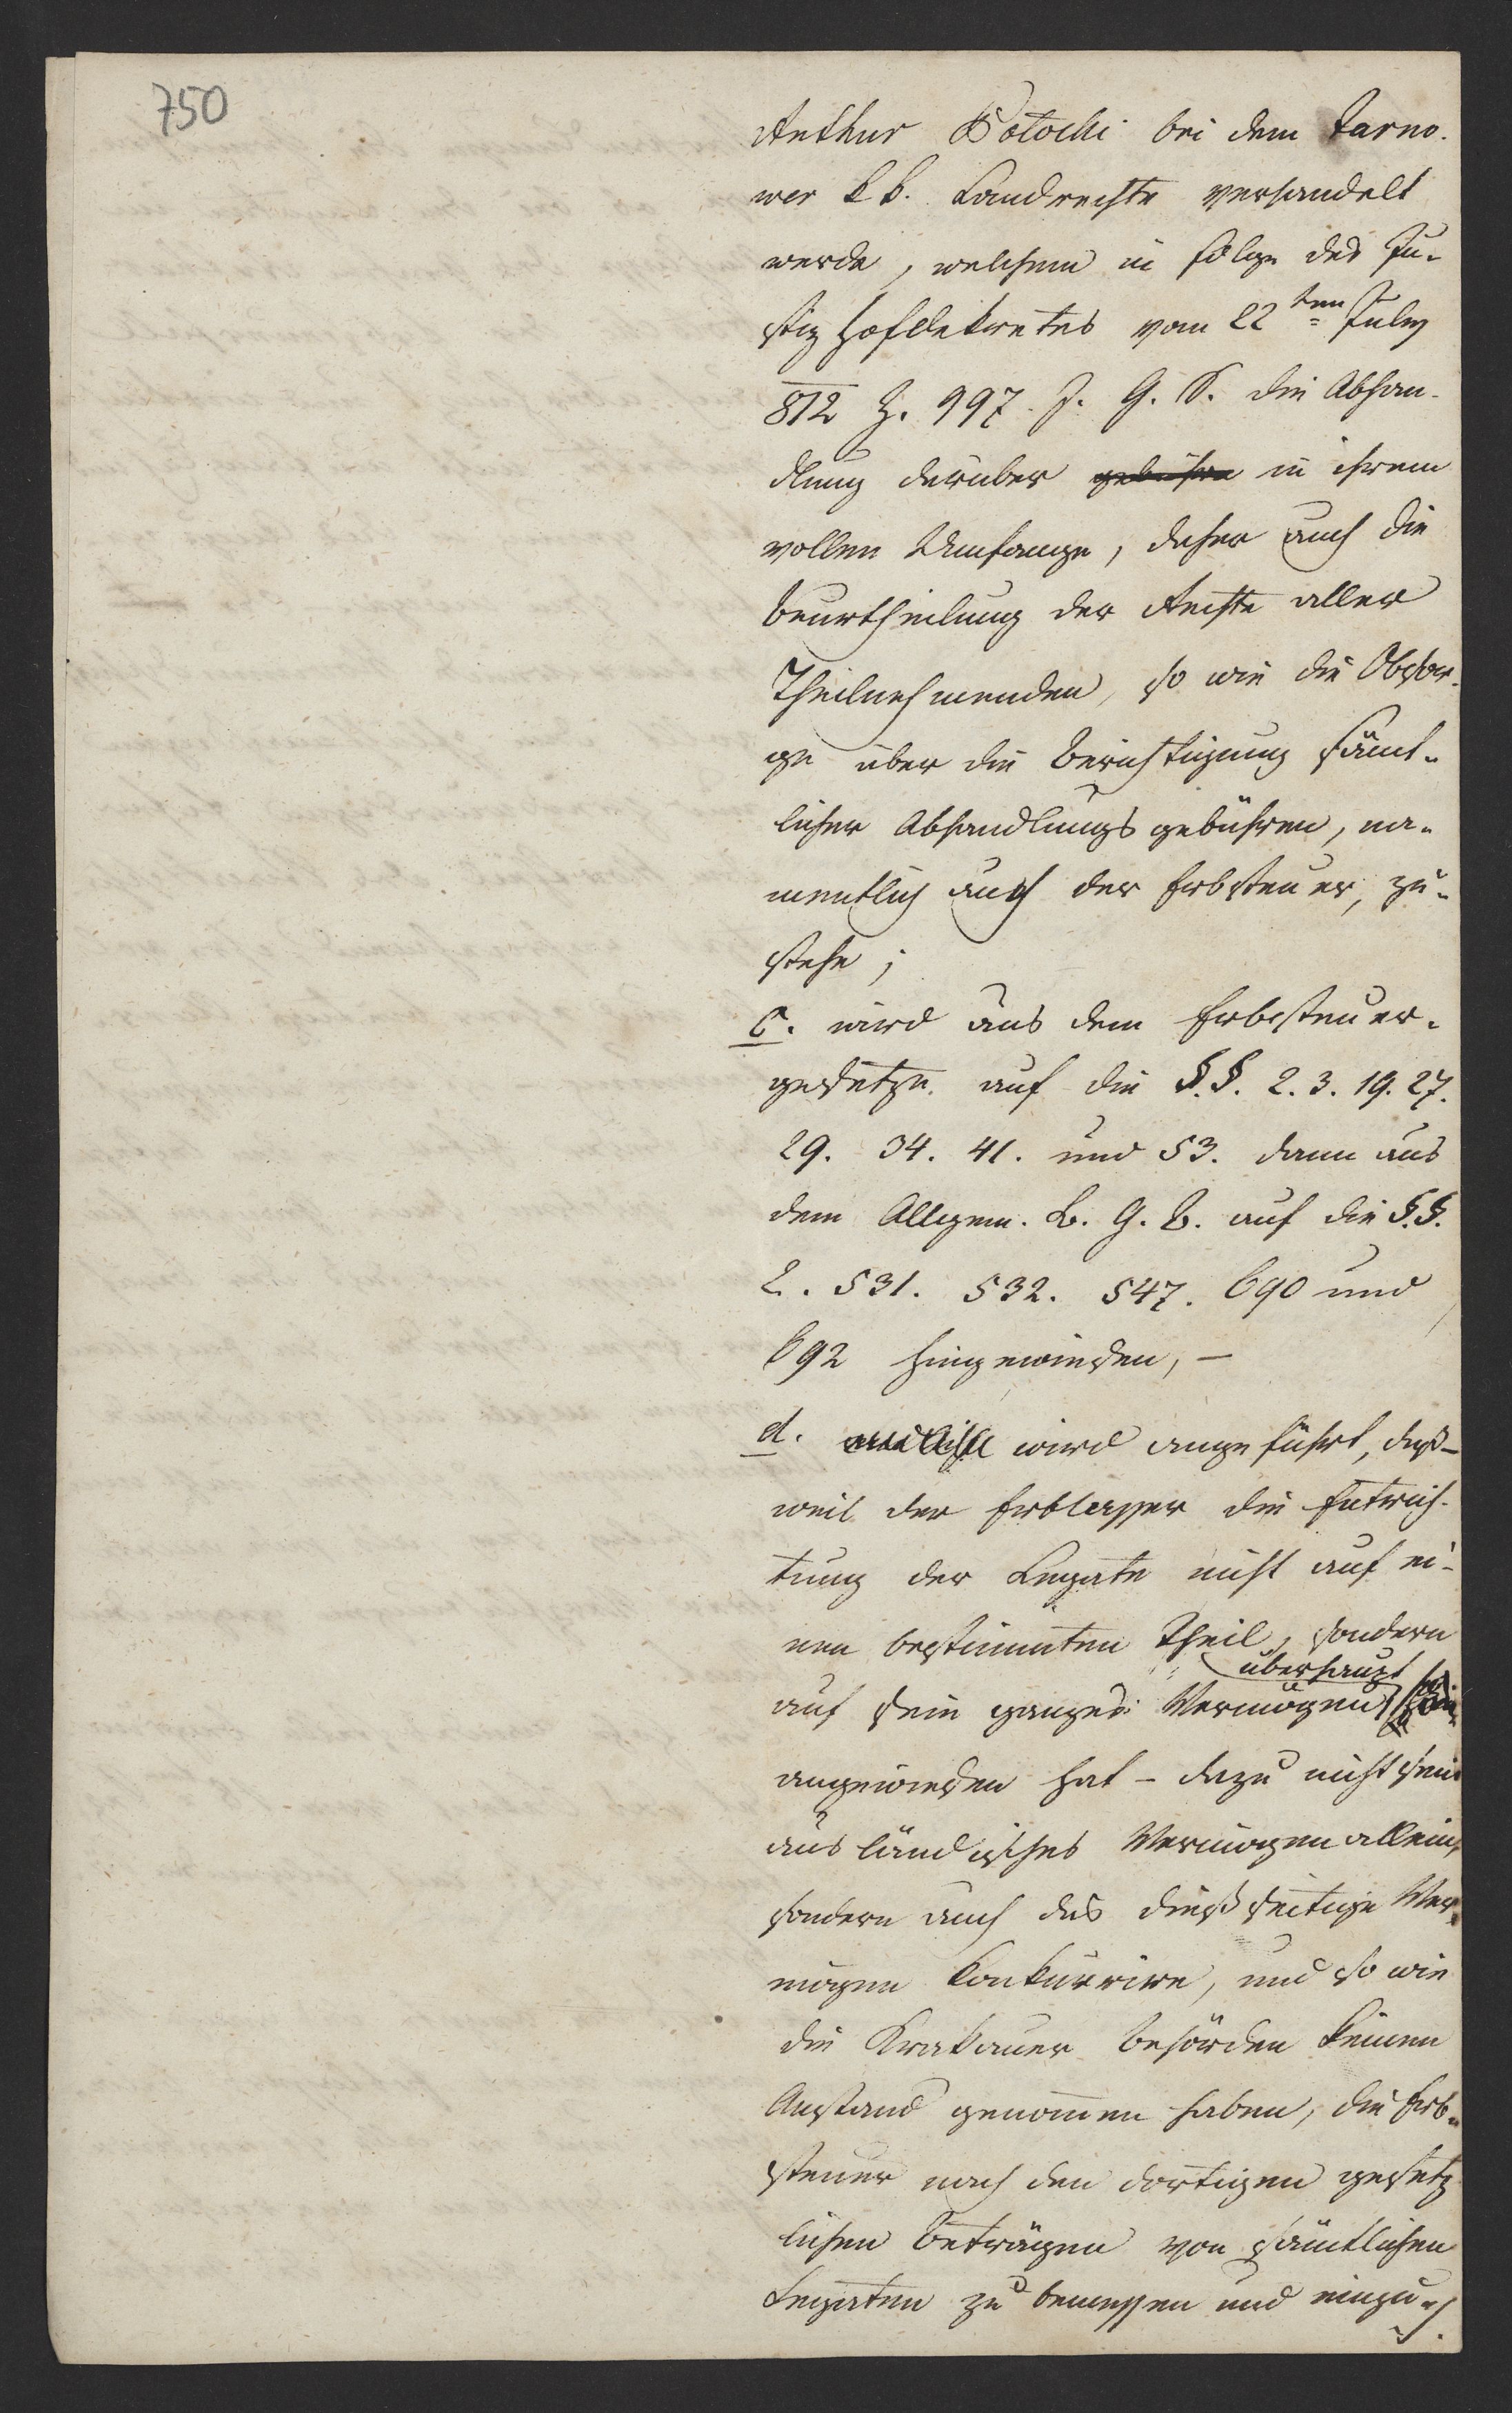 750
Arthur Potocki bei dem Tarno-
wer k k. Landrechte verhandelt
werde, welchem in Folge des Ju-
stiz Hofdekretes vom 22ten July
812 Z. 997 J. G. S. die Abhan-
dlung darüber gebühre in ihrem
vollen Umfange, daher auch die
Beurtheilung der Rechte aller
Theilnehmenden, so wie die Obsor-
ge über die Berichtigung sämt-
licher Abhandlungsgebühren, na-
mentlich auch der Erbsteuer, zu-
stehe;
c. wird aus dem Erbsteuer-
gesetze auf die §.§. 2. 3. 19. 27.
29. 34. 41. und 53. dann aus
dem Allgem. B. G. B. auf die §.§.
2. 531. 532. 547. 690 und
692 hingewiesen, –
d. wird angeführt, daß –
weil der Erblasser die Entrich-
tung der Legate nicht auf ei-
nen bestimmten Theil, sondern
überhaupt
auf sein ganzes Vermögen
angewiesen hat – dazu nicht sein
ausländisches Vermögen allein,
sondern auch das dießseitige Ver-
mögen konkurrire, und so wie
die Krakauer Behörden keinen
Anstand genommen haben, die Erb-
steuer nach den dortigen gesetz
lichen Beträgen von sämtlichen
Legaten zu bemessen und einzu-